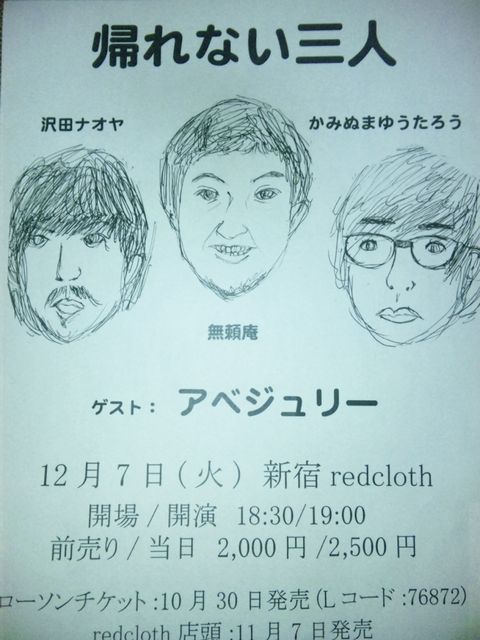 帰れない三人
沢田ナオヤ
かみぬまゆうたろう
無頼庵
ゲスト: アベジュリー
12月7日(火) 新宿redcloth
開場/開演 18:30/19:00
前売り/当日 2,000円/2,500円
ローソンチケット:10月30日発売(Lコード:76872)
redcloth店頭:11月7日発売